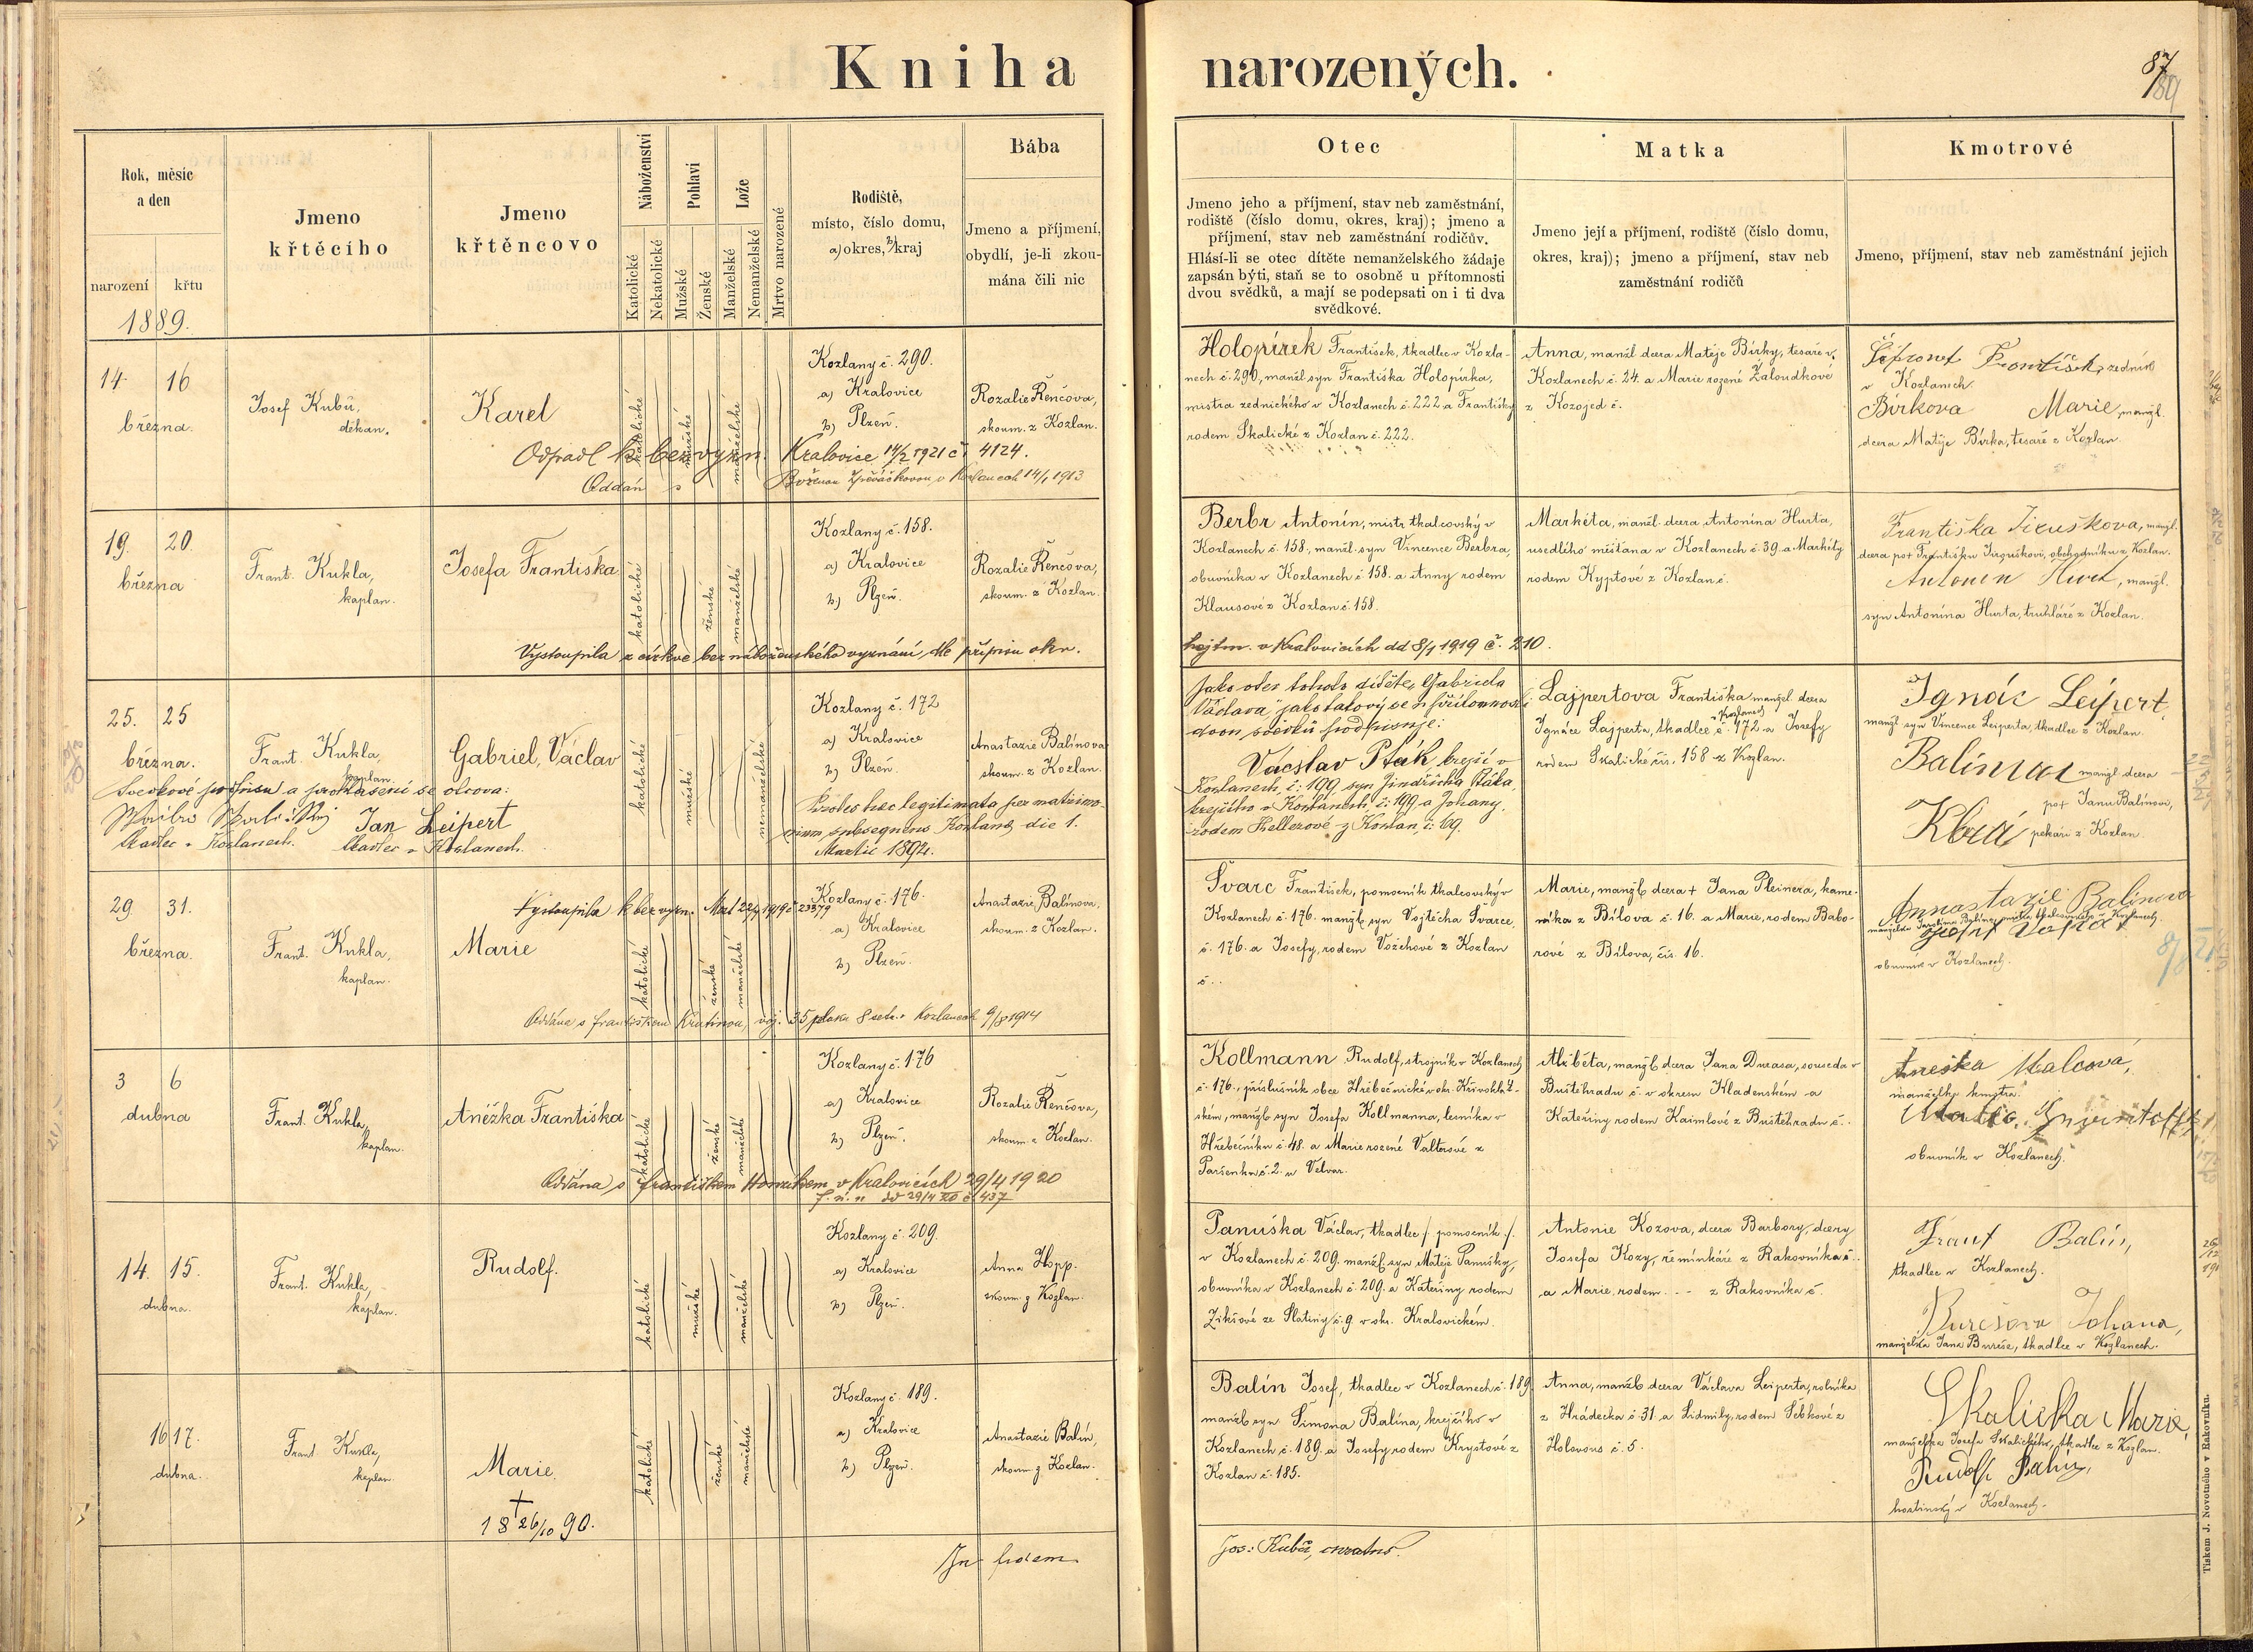 Kniha narozených.
87
89
Rok, měsíc
a den
narození
křtu
1889.
Jmeno
křtěcího
Jmeno
křtěncovo
Náboženství
Katolické
Nekatolické
Pohlaví
Mužské
Ženské
Lože
Manželské
Nemanželské
Mrtvo narozené
Rodiště,
místo, číslo domu,
a) okres, b) kraj
Bába
Jmeno a příjmení,
obydlí, je-li zkou-
mána čili nic
Otec
Jmeno jeho a příjmení, stav neb zaměstnání,
rodiště (číslo domu, okres, kraj); jmeno a
příjmení, stav neb zaměstnání rodičův.
Hlásí-li se otec dítěte nemanželského žádaje
zapsán býti, staň se to osobně u přítomnosti
dvou svědků, a mají se podepsati on i ti dva
svědkové.
Matka
Jmeno její a příjmení, rodiště (číslo domu,
okres, kraj); jmeno a příjmení, stav neb
zaměstnání rodičů
Kmotrové
Jmeno, příjmení, stav neb zaměstnání jejich
14. 16.
března.
Josef Kubů,
děkan.
Karel
katolické
mužské
manželské
Kozlany č. 290.
a) Kralovice
b) Plzeň.
Rozalie Řenčova,
skoum. z Kozlan.
Odpadl k bez vyzn. Kralovice 14/2 1921 č 4124.
Oddán s Boženou v Kozlanech 14/1 1913
Holopírek František, tkadlec v Kozla-
nech č. 290, manžl. syn Františka Holopírka,
mistra zednického v Kozlanech č. 222 a Františky
rodem Skalické z Kozlan č. 222.
Anna, manžl dcera Matěje Bírky, tesaře v.
Kozlanech č. 24. a Marie rozené Žaloudkové
z Kozojed č.
František, zedník
v Kozlanech.
Bírkova Marie, manžl.
dcera Matěje Bírka, tesaře z Kozlan.
19. 20.
března
Frant. Kukla,
kaplan.
Josefa Františka
katolické
ženské
manželské
Kozlany č. 158.
a) Kralovice
b) Plzeň.
Rozalie Řenčova,
skoum. z Kozlan.
Vystoupila z církve bez náboženského vyznání, dle přípisu okr.
hejtm. v Kralovicích dd 8/1 1919 č. 210.
Berbr Antonín, mistr tkalcovský v
Kozlanech č. 158., manžl. syn Vincence Berbra,
obuvníka v Kozlanech č. 158. a Anny rodem
Klausové z Kozlan č. 158.
Markéta, manžl. dcera Antonína Hurta,
usedlího měšťana v Kozlanech č. 39. a Markéty
rodem Kyptové z Kozlan č.
Františka Jirušková, manžl.
dcera po † Františku Jirouškovi, obchodníku z Kozlan.
Antonín Hurt, manžl.
syn Antonína Hurta, truhláře z Kozlan.
25. 25
března.
Frant. Kukla,
kaplan.
Gabriel, Václav
katolické
mužské
nemanželské
Kozlany č. 172
a) Kralovice
b) Plzeň.
Anastazie Balínova
skoum. z Kozlan.
Svědkové podpisu a prohlášení se otcova:
Jan Leipert
tkadlec v Kozlanech. tkadlec v Kozlanech.
Proles haec legitimata per matrimo-
nium subsequens Kozlany die 1.
Martii 1892.
Jako otec tohoto dítěte, Gabriela
Václava, jako takový se u přítomnosti
dvou svědků podpisuje:
Vácslav Pták, krejčí v
Kozlanech, č: 199, syn Jindřicha Ptáka,
krejčího v Kozlanech, č: 199 a Johany,
rodem Kellerové z Kozlan, č: 69.
Lajpertova Františka manžel. dcera
Ignáce Lajperta, tkadlce v Kozlanech č. 172 a Josefy
rodem Skalické čís. 158 z Kozlan.
Ignác Leipert,
manžl. syn Vincence Leiperta, tkadlce z Kozlan.
Balínova manžl dcera
po † Janu Balínovi,
Klára pekaři z Kozlan.
29 31.
března.
Frant. Kukla,
kaplan.
Marie
katolické
ženské
manželské
Vystoupila k bez vyzn. 1919 č 23379
Kozlany č. 176.
a) Kralovice
b) Plzeň.
Anastazie Balínova.
skoum. z Kozlan.
Oddána s Františkem Krutinou, voj. 35 pluku 8 setn. v Kozlanech 9/8 1914
Švarc František, pomocník tkalcovský v
Kozlanech č. 176. manžl. syn Vojtěcha Švarce,
č. 176. a Josefy, rodem Vožehové z Kozlan
č..
Marie, manžl. dcera † Jana Pleinera, kame-
níka z Bílova č. 16. a Marie, rodem Babo-
rové z Bílova, čís. 16.
Annastazie Balinova
obuvník v Kozlanech.
3 6
dubna
Frant. Kukla,
kaplan.
Anéžka Františka
katolické
ženské
manželské
Kozlany č. 176
a) Kralovice
b) Plzeň.
Rozalie Řenčova,
skoum. z Kozlan.
Oddána s Františkem v Kralovicích 29/4 1920
Kollmann Rudolf, strojník v Kozlanech
č. 176., příslušník obce Hřebečnické v okr. Křivoklát-
ském, manžl. syn Josefa Kollmanna, lesníka v
Hřebečníku č. 48. a Marie rozené Valterové z
č. 2. u Velvar.
Alžběta, manžl. dcera Jana Ducasa, souseda v
Buštěhradu č. v okresu Kladenském a
Kateřiny rodem Kaimlové z Buštěhradu č..
Aneška Malcová,
manželka
obuvník v Kozlanech.
14. 15.
dubna.
Frant. Kukla,
kaplan.
Rudolf.
katolické
mužské
manželské
Kozlany č. 209.
a) Kralovice
b) Plzeň.
Anna Hopp.
skoum. z Kozlan.
Panuška Václav, tkadlec /: pomocník :/
v Kozlanech č. 209. manžl. syn Matěje Panušky,
obuvníka v Kozlanech č. 209. a Kateřiny rodem
Zikšové ze Slatiny č. 9 v okr. Kralovickém.
Antonie Kozova, dcera Barbory, dcery
Josefa Kozy, řemínkáře z Rakovníka č..
a Marie, rodem... z Rakovníka č.
Frant Balín,
tkadlec v Kozlanech.
Burešova Johana,
manželka Jana Bureše, tkadlce v Kozlanech.
16 17.
dubna.
Frant. Kukla,
kaplan.
Marie.
†
18 26/10 90.
katolické
ženské
manželské
Kozlany č. 189.
a) Kralovice
b) Plzeň.
Anastazie Balín,
skoum. z Kozlan.
Balín Josef, tkadlec v Kozlanech č. 189.
manžl. syn Šimona Balína, krejčího v
Kozlanech č. 189. a Josefy rodem Krystové z
Kozlan č. 185.
Anna, manžl. dcera Václava Leiperta, rolníka
z Hrádecka č. 31. a Lidmily, rodem Sebkové z
Holovous č. 5.
Skalicka Marie,
manželka Josefa Skalického, tkadlce z Kozlan.
Rudolf Balín,
hostinský v Kozlanech.
In fidem
Jos: Kubů, curatus.
Tiskem J. Novotného v Rakovníku.